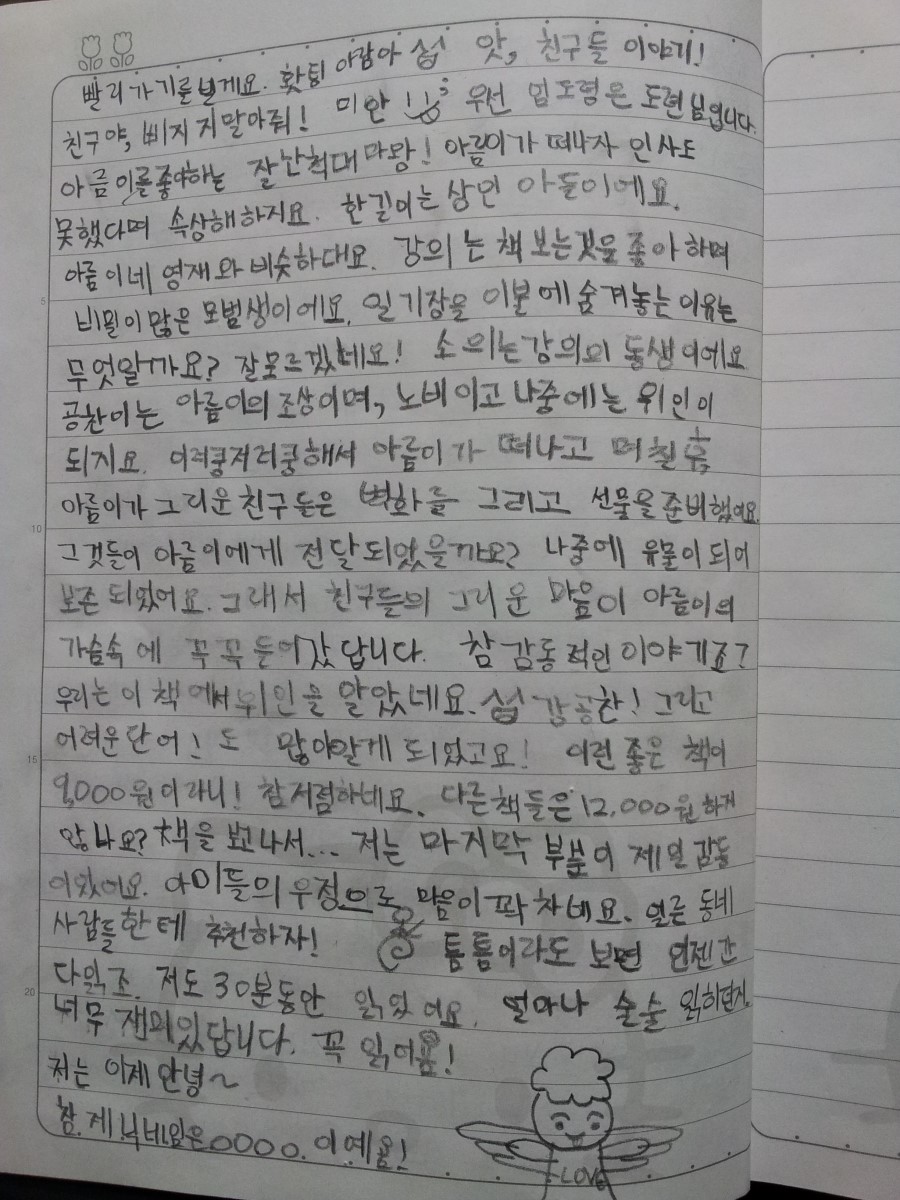 빨리 가기를 빌게요. 홧팅 아람아 섬 앗, 친구들 이야기!
친구야, 삐지지말아줘! 미안 우선 임도령은 도련님입니다.
아름이를좋아하는 잘난척대마왕! 아름이가 떠나자 인사도
못했다며 속상해하지요. 한길이는 상인 아들이에요.
아름이네 영재와 비슷하대요. 강의는 책 보는것을 좋아하며
비밀이 많은 모범생이에요. 일기장을 이본에 숨겨놓는 이유는
무엇일까요? 잘모르겠네요! 소의는 강의의 동생이에요
공찬이는 아름이의 조상이며, 노비이고 나중에는 위인이
되지요. 이러쿵저러쿵해서 아름이가 떠나고 며칠 후,
아름이가 그리운 친구들은 벽화를 그리고 선물을 준비했어요.
그것들이 아름이에게 전달되었을까요? 나중에 유물이 되어
보존 되었어요. 그래서 친구들의 그리운 마음이 아름이의
가슴속에 꾹꾹 들어갔답니다. 참 감동적인 이야기죠?
우리는 이 책에서 위인을 알았네요. 섬 강공찬! 그리고
어려운단어! 도 많이알게 되었고요! 이런 좋은 책이
9,000원이라니! 참저렴하네요. 다른책들은 12,000원하지
않나요? 책을 보고나서... 저는 마지막 부분이 제일 감동
이었어요. 아이들의 우정으로 마음이 꽉 차네요. 얼른 동네
사람들한테 추천하자! 틈틈이라도 보면 언젠간
다읽죠. 저도 30분동안 읽었어요. 얼마나 술술 읽히던지.
너무 재미있답니다. 꼭 읽어욤!
저는 이제 안녕~
참. 제 닉네임은 0000. 이예욤!
LOVE
5
10
15
20